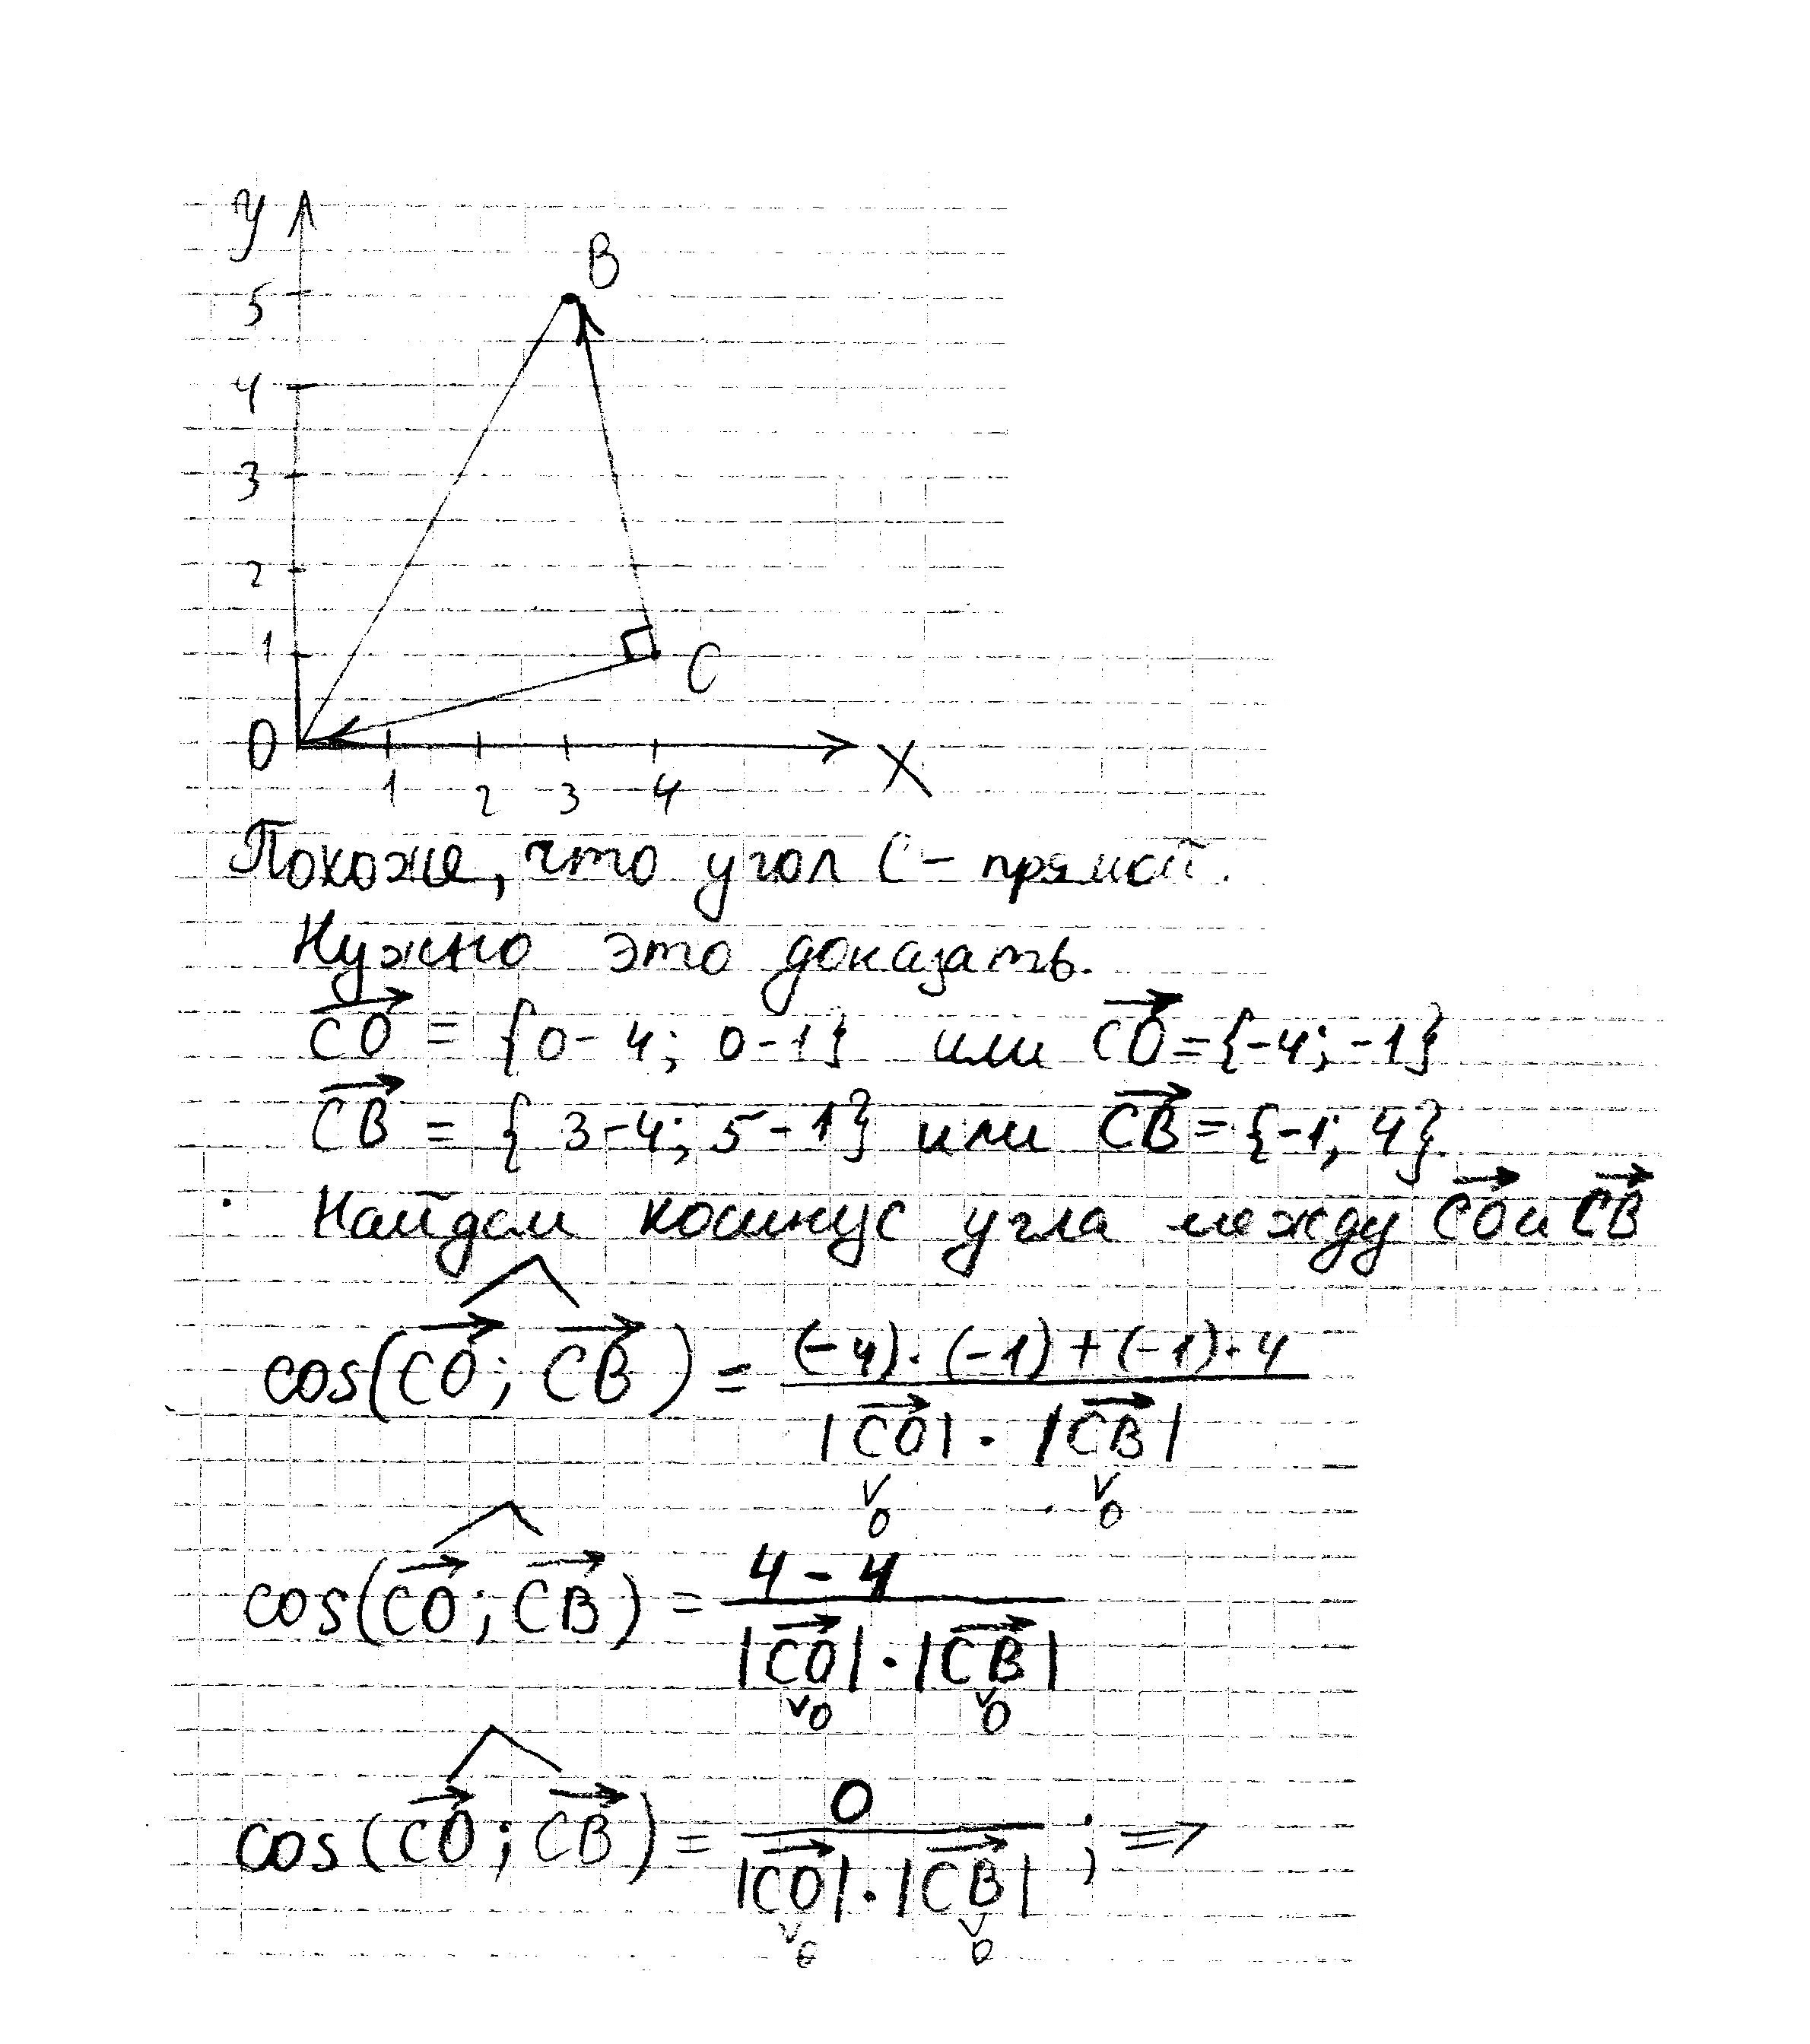 y
B
5
4
3
2
1
C
O
1 2 3 4
X
Похоже, что угол C – прямой.
Нужно это доказать.
CO = {0-4; 0-1} или CO={-4; -1}
CB = {3-4; 5-1} или CB={-1; 4}.
Найдём косинус угла между CO и CB
cos(CO; CB) = (-4)·(-1)+(-1)·4
|CO| · |CB|
V V
0 0
cos(CO; CB) = 4-4
|CO| · |CB|
V0 V0
cos(CO; CB) = 0 ; ⇒
|CO| · |CB|
V V
0 0